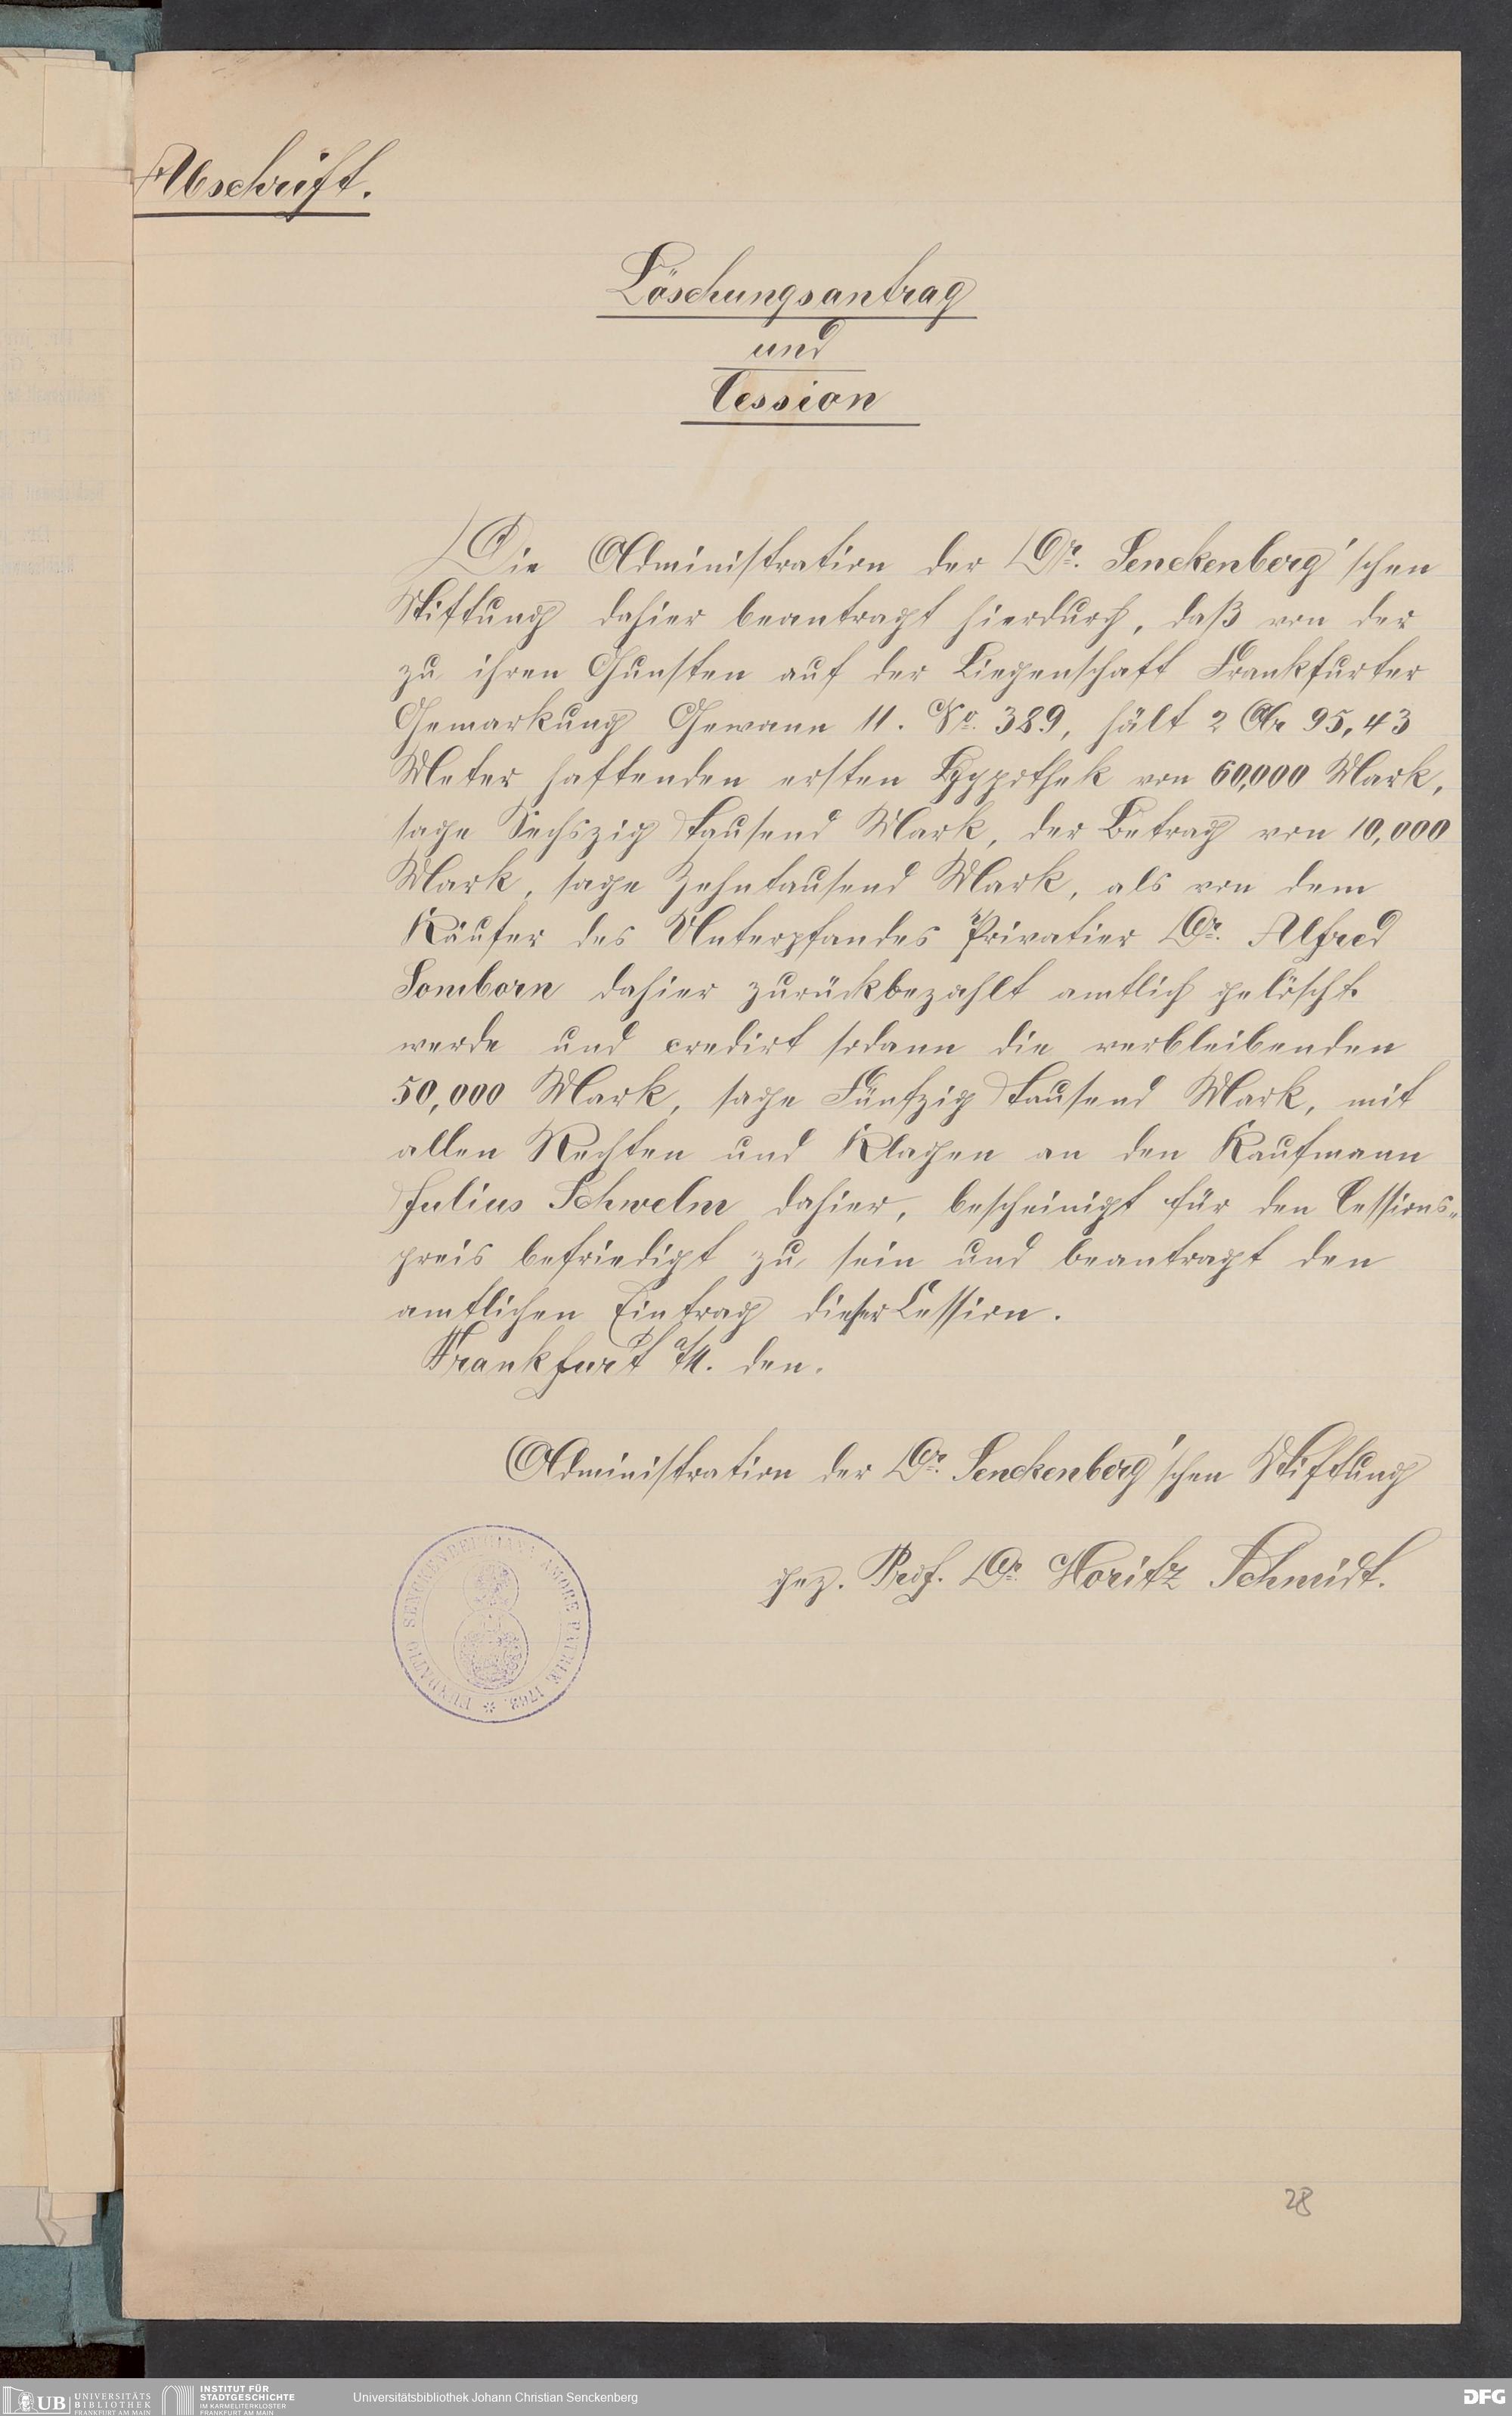 Abschrift.
Löschungsantrag
und
Cession
Die Administration der Dr. Senckenberg'schen
Stiftung dahier beantragt hierdurch, daß von der
zu ihren Gunsten auf der Liegenschaft Frankfurter
Gemarkung Gewann 11. No. 389, hält 2 Ar 95,43
Meter haftenden ersten Hypothek von 60,000 Mark,
sage Sechszig Tausend Mark, der Betrag von 10,000
Mark, sage Zehntausend Mark, als von dem
Käufer des Unterpfandes Privatier Dr. Alfred
Somborn dahier zurückbezahlt amtlich gelöscht
werde und credirt sodann die verbleibenden
50,000 Mark, sage Fünfzig Tausend Mark, mit
allen Rechten und Klagen an den Kaufmann
Julius Schwelm dahier, bescheinigt für den Cessions-
preis befriedigt zu sein und beantragt den
amtlichen Eintrag dieser Cession.
Frankfurt a/M. den.
Administration der Dr. Senckenberg'schen Stiftung
gez. Prof. Dr. Moritz Schmidt.
FUNDATIO SENCKENBERGIANA AMORE PATRIÆ 1763.
28
UB UNIVERSITÄTS
BIBLIOTHEK
FRANKFURT AM MAIN
INSTITUT FÜR
STADTGESCHICHTE
IM KARMELITERKLOSTER
FRANKFURT AM MAIN
Universitätsbibliothek Johann Christian Senckenberg
DFG